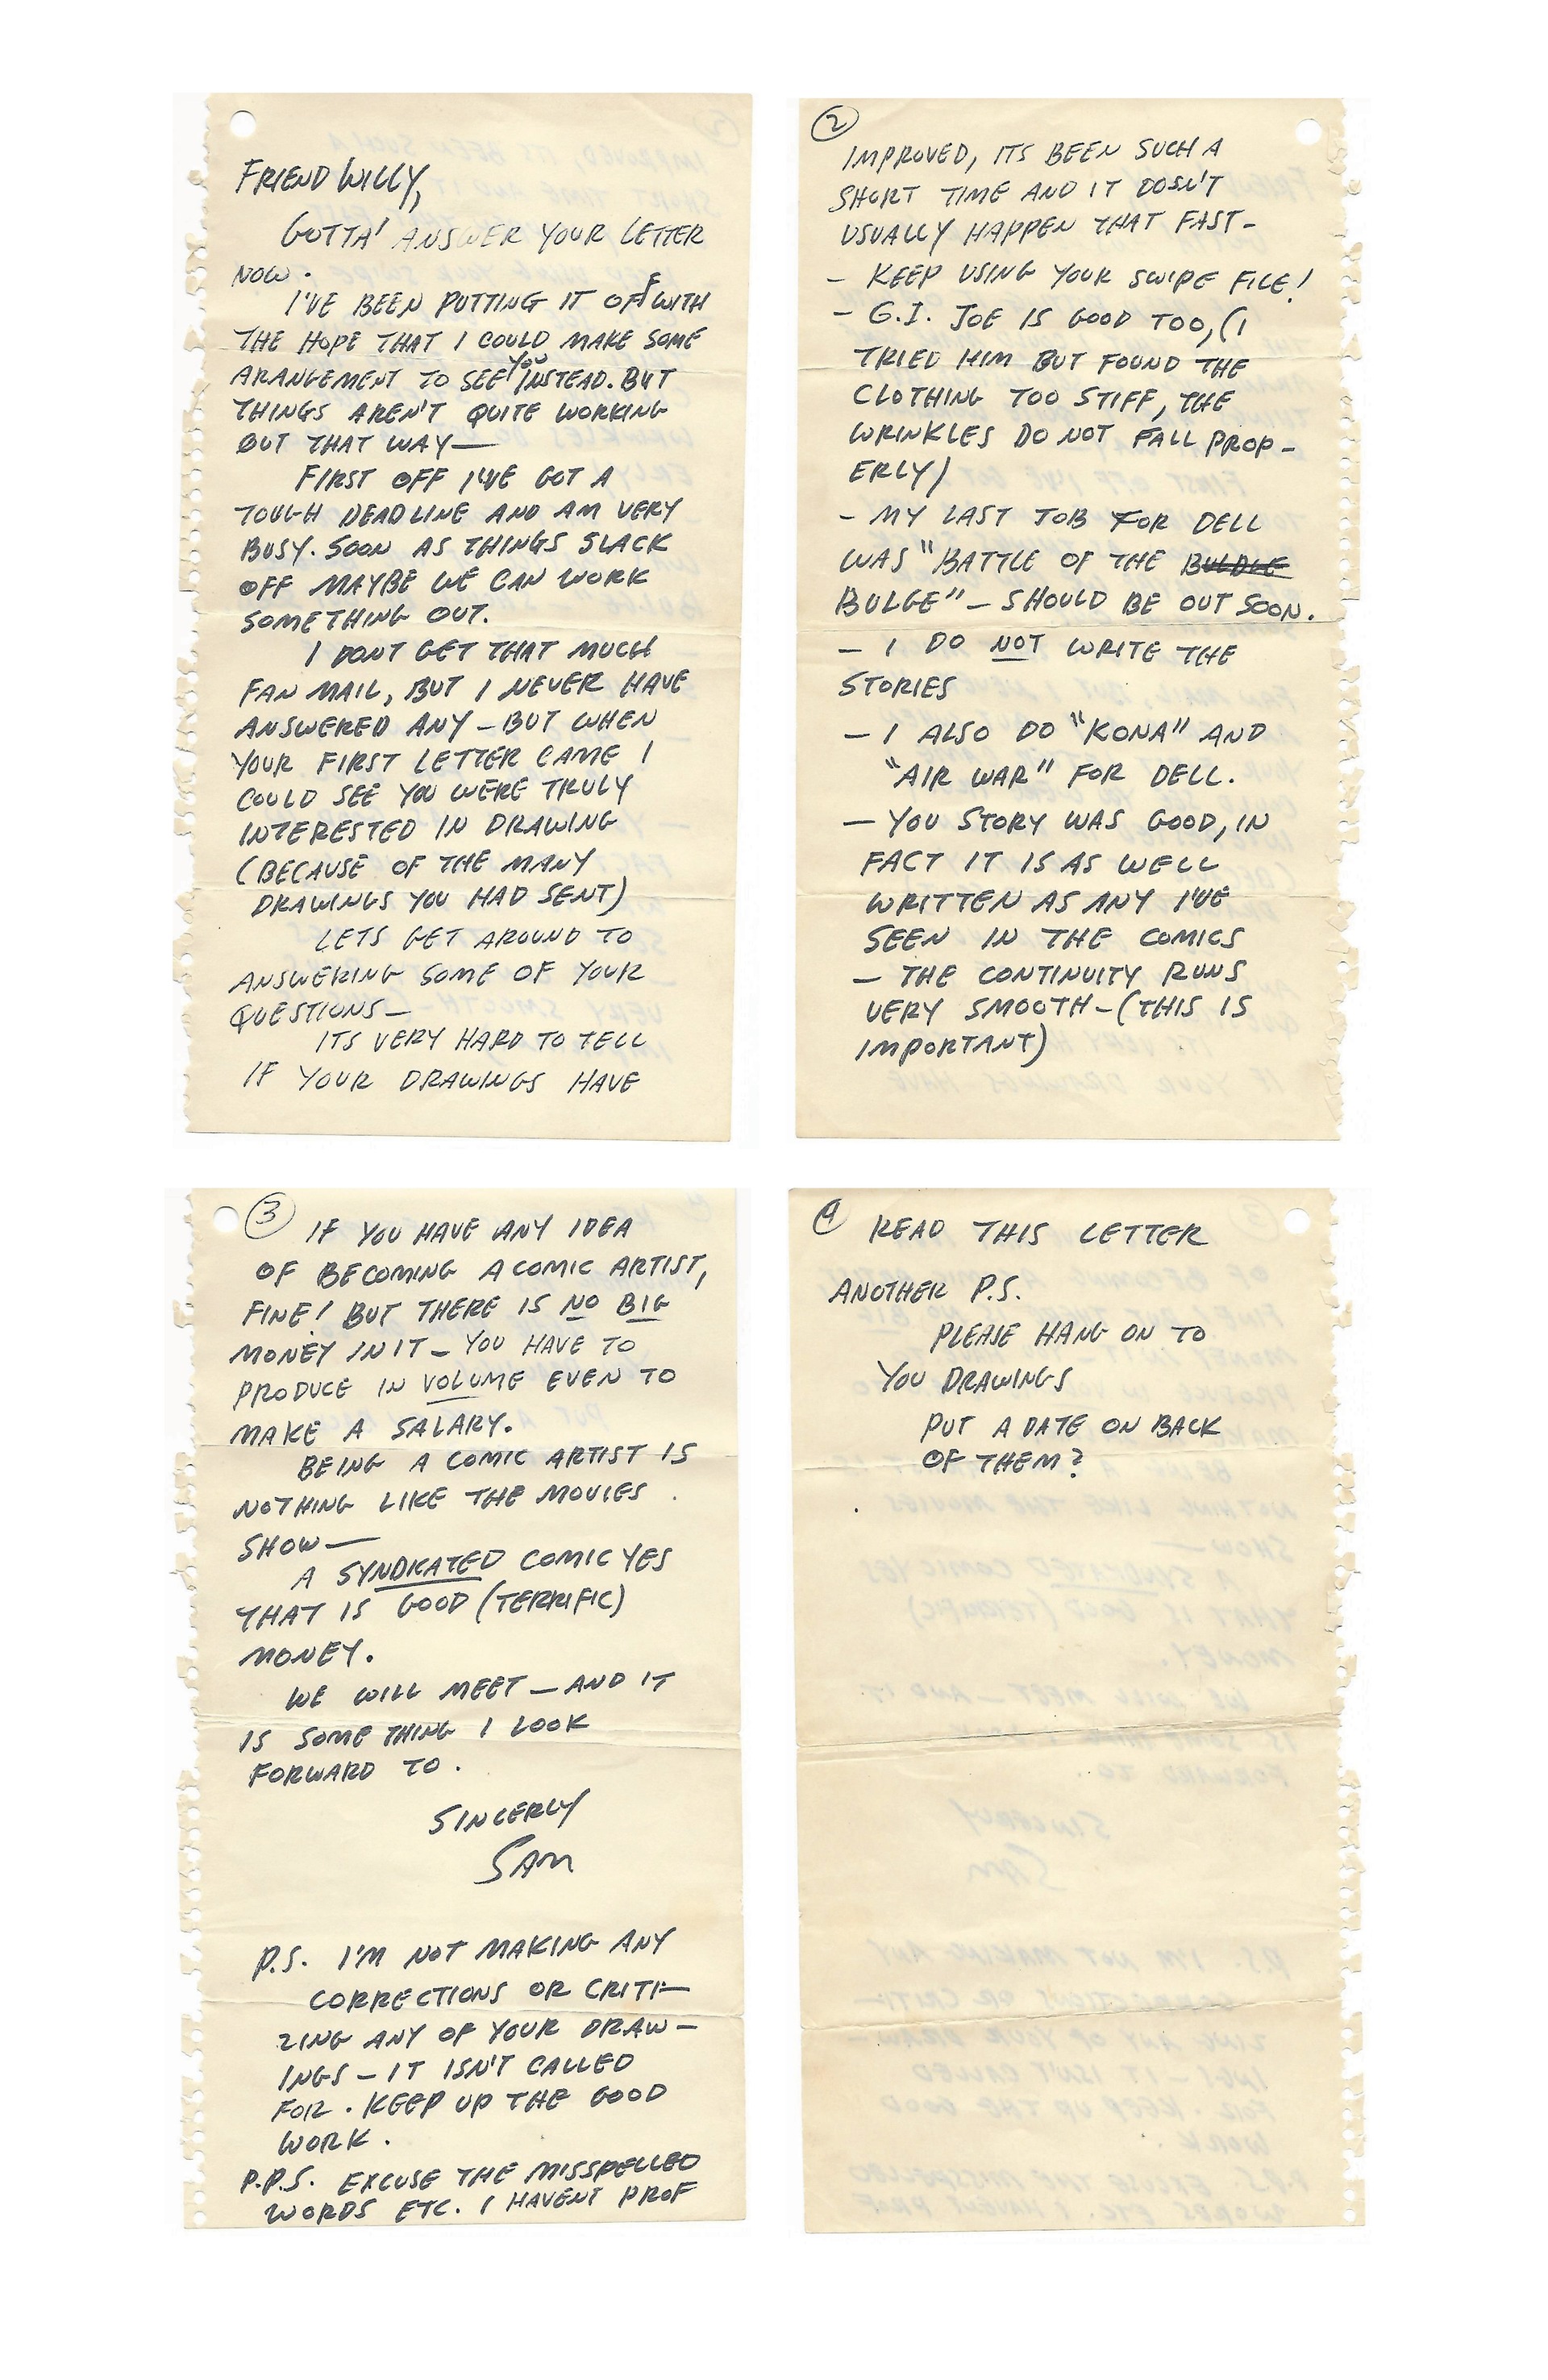 FRIEND WILLY,
GOTTA' ANSWER YOUR LETTER
NOW.
I'VE BEEN PUTTING IT OFF WITH
THE HOPE THAT I COULD MAKE SOME
ARANGEMENT TO SEE YOU INSTEAD. BUT
THINGS AREN'T QUITE WORKING
OUT THAT WAY—
FIRST OFF I'VE GOT A
TOUGH DEADLINE AND AM VERY
BUSY. SOON AS THINGS SLACK
OFF MAYBE WE CAN WORK
SOMETHING OUT.
I DONT GET THAT MUCH
FAN MAIL, BUT I NEVER HAVE
ANSWERED ANY – BUT WHEN
YOUR FIRST LETTER CAME I
COULD SEE YOU WERE TRULY
INTERESTED IN DRAWING
(BECAUSE OF THE MANY
DRAWINGS YOU HAD SENT)
LETS GET AROUND TO
ANSWERING SOME OF YOUR
QUESTIONS—
ITS VERY HARD TO TELL
IF YOUR DRAWINGS HAVE
2
IMPROVED, ITS BEEN SUCH A
SHORT TIME AND IT DOSN'T
USUALLY HAPPEN THAT FAST–
– KEEP USING YOUR SWIPE FILE!
– G.I. JOE IS GOOD TOO, (I
TRIED HIM BUT FOUND THE
CLOTHING TOO STIFF, THE
WRINKLES DO NOT FALL PROP-
ERLY)
– MY LAST JOB FOR DELL
WAS "BATTLE OF THE
BULGE" – SHOULD BE OUT SOON.
– I DO NOT WRITE THE
STORIES
– I ALSO DO "KONA" AND
"AIR WAR" FOR DELL.
– YOU STORY WAS GOOD, IN
FACT IT IS AS WELL
WRITTEN AS ANY I'VE
SEEN IN THE COMICS
– THE CONTINUITY RUNS
VERY SMOOTH – (THIS IS
IMPORTANT)
3
IF YOU HAVE ANY IDEA
OF BECOMING A COMIC ARTIST,
FINE! BUT THERE IS NO BIG
MONEY IN IT – YOU HAVE TO
PRODUCE IN VOLUME EVEN TO
MAKE A SALARY.
BEING A COMIC ARTIST IS
NOTHING LIKE THE MOVIES
SHOW—
A SYNDICATED COMIC YES
THAT IS GOOD (TERRIFIC)
MONEY.
WE WILL MEET – AND IT
IS SOMETHING I LOOK
FORWARD TO.
SINCERLY
SAM
P.S. I'M NOT MAKING ANY
CORRECTIONS OR CRITI-
ZING ANY OF YOUR DRAW-
INGS – IT ISN'T CALLED
FOR. KEEP UP THE GOOD
WORK.
P.P.S. EXCUSE THE MISSPELLED
WORDS ETC. I HAVENT PROF
4
READ THIS LETTER
ANOTHER P.S.
PLEASE HANG ON TO
YOU DRAWINGS
PUT A DATE ON BACK
OF THEM?